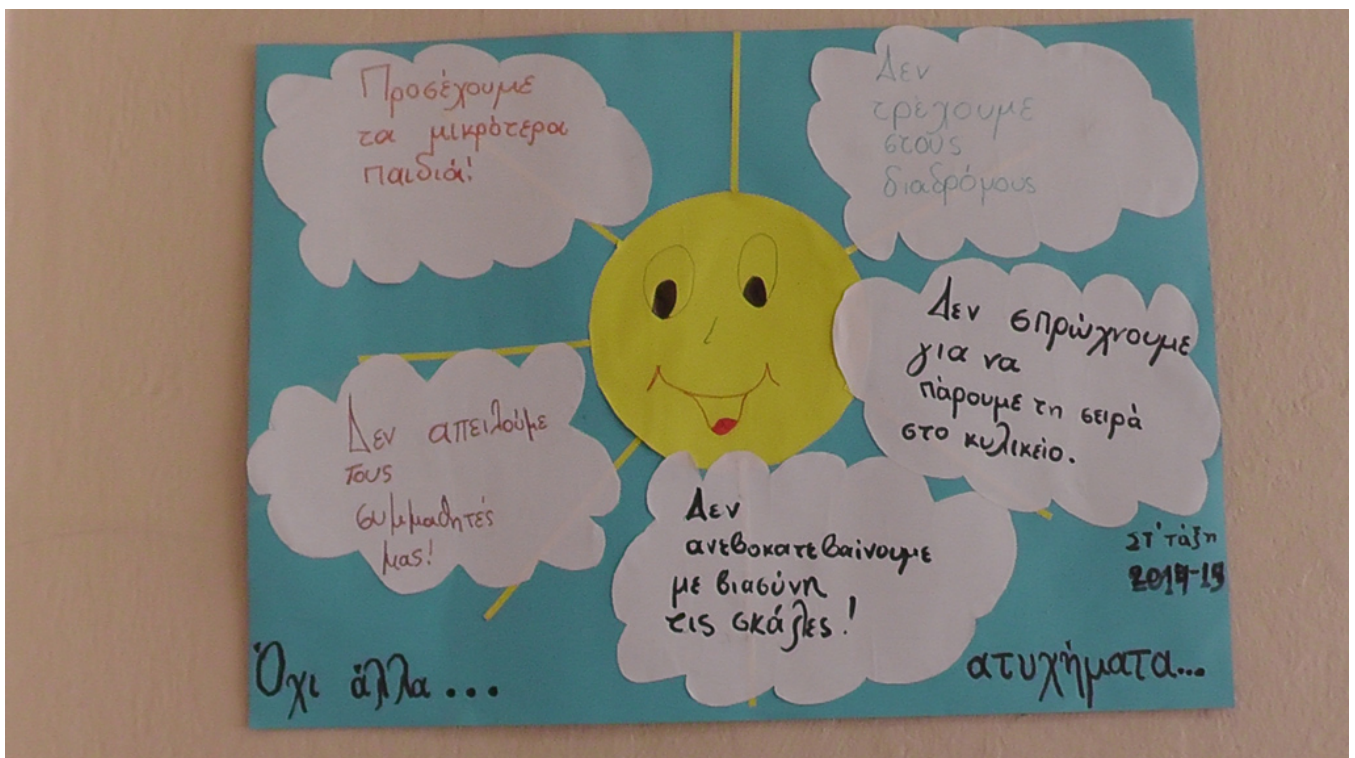 Προσέχουμε
τα μικρότερα
παιδιά!
Δεν
τρέχουμε
στους
διαδρόμους
Δεν σπρώχνουμε
για να
πάρουμε τη σειρά
στο κυλικείο.
Δεν απειλούμε
τους
συμμαθητές
μας!
Δεν
ανεβοκατεβαίνουμε
με βιασύνη
τις σκάλες!
ΣΤ' τάξη
Όχι άλλα...
ατυχήματα...